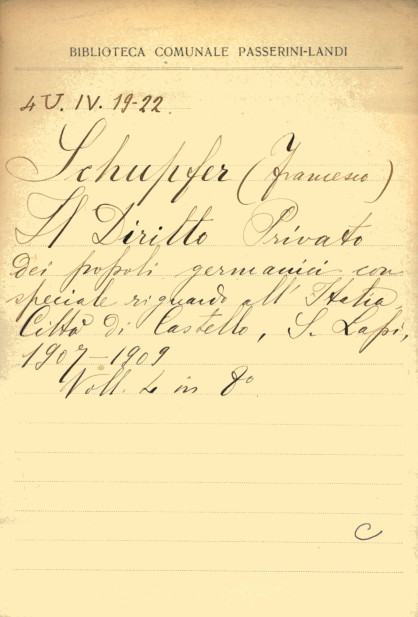 BIBLIOTECA COMUNALE PASSERINI-LANDI
4U. IV. 19-22
Schupfer (Francesco)
Il Diritto Privato
dei popoli germanici con
speciale riguardo all'Italia
Città di Castello, S. Lapi,
1907-1909
Voll. 4 in 8°
C